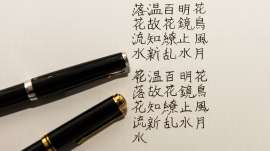 落温百明花
花故花鏡鳥
流知繚止風
水新乱水月
花温百明花
落故花鏡鳥
花知繚止風
流新乱水月
水